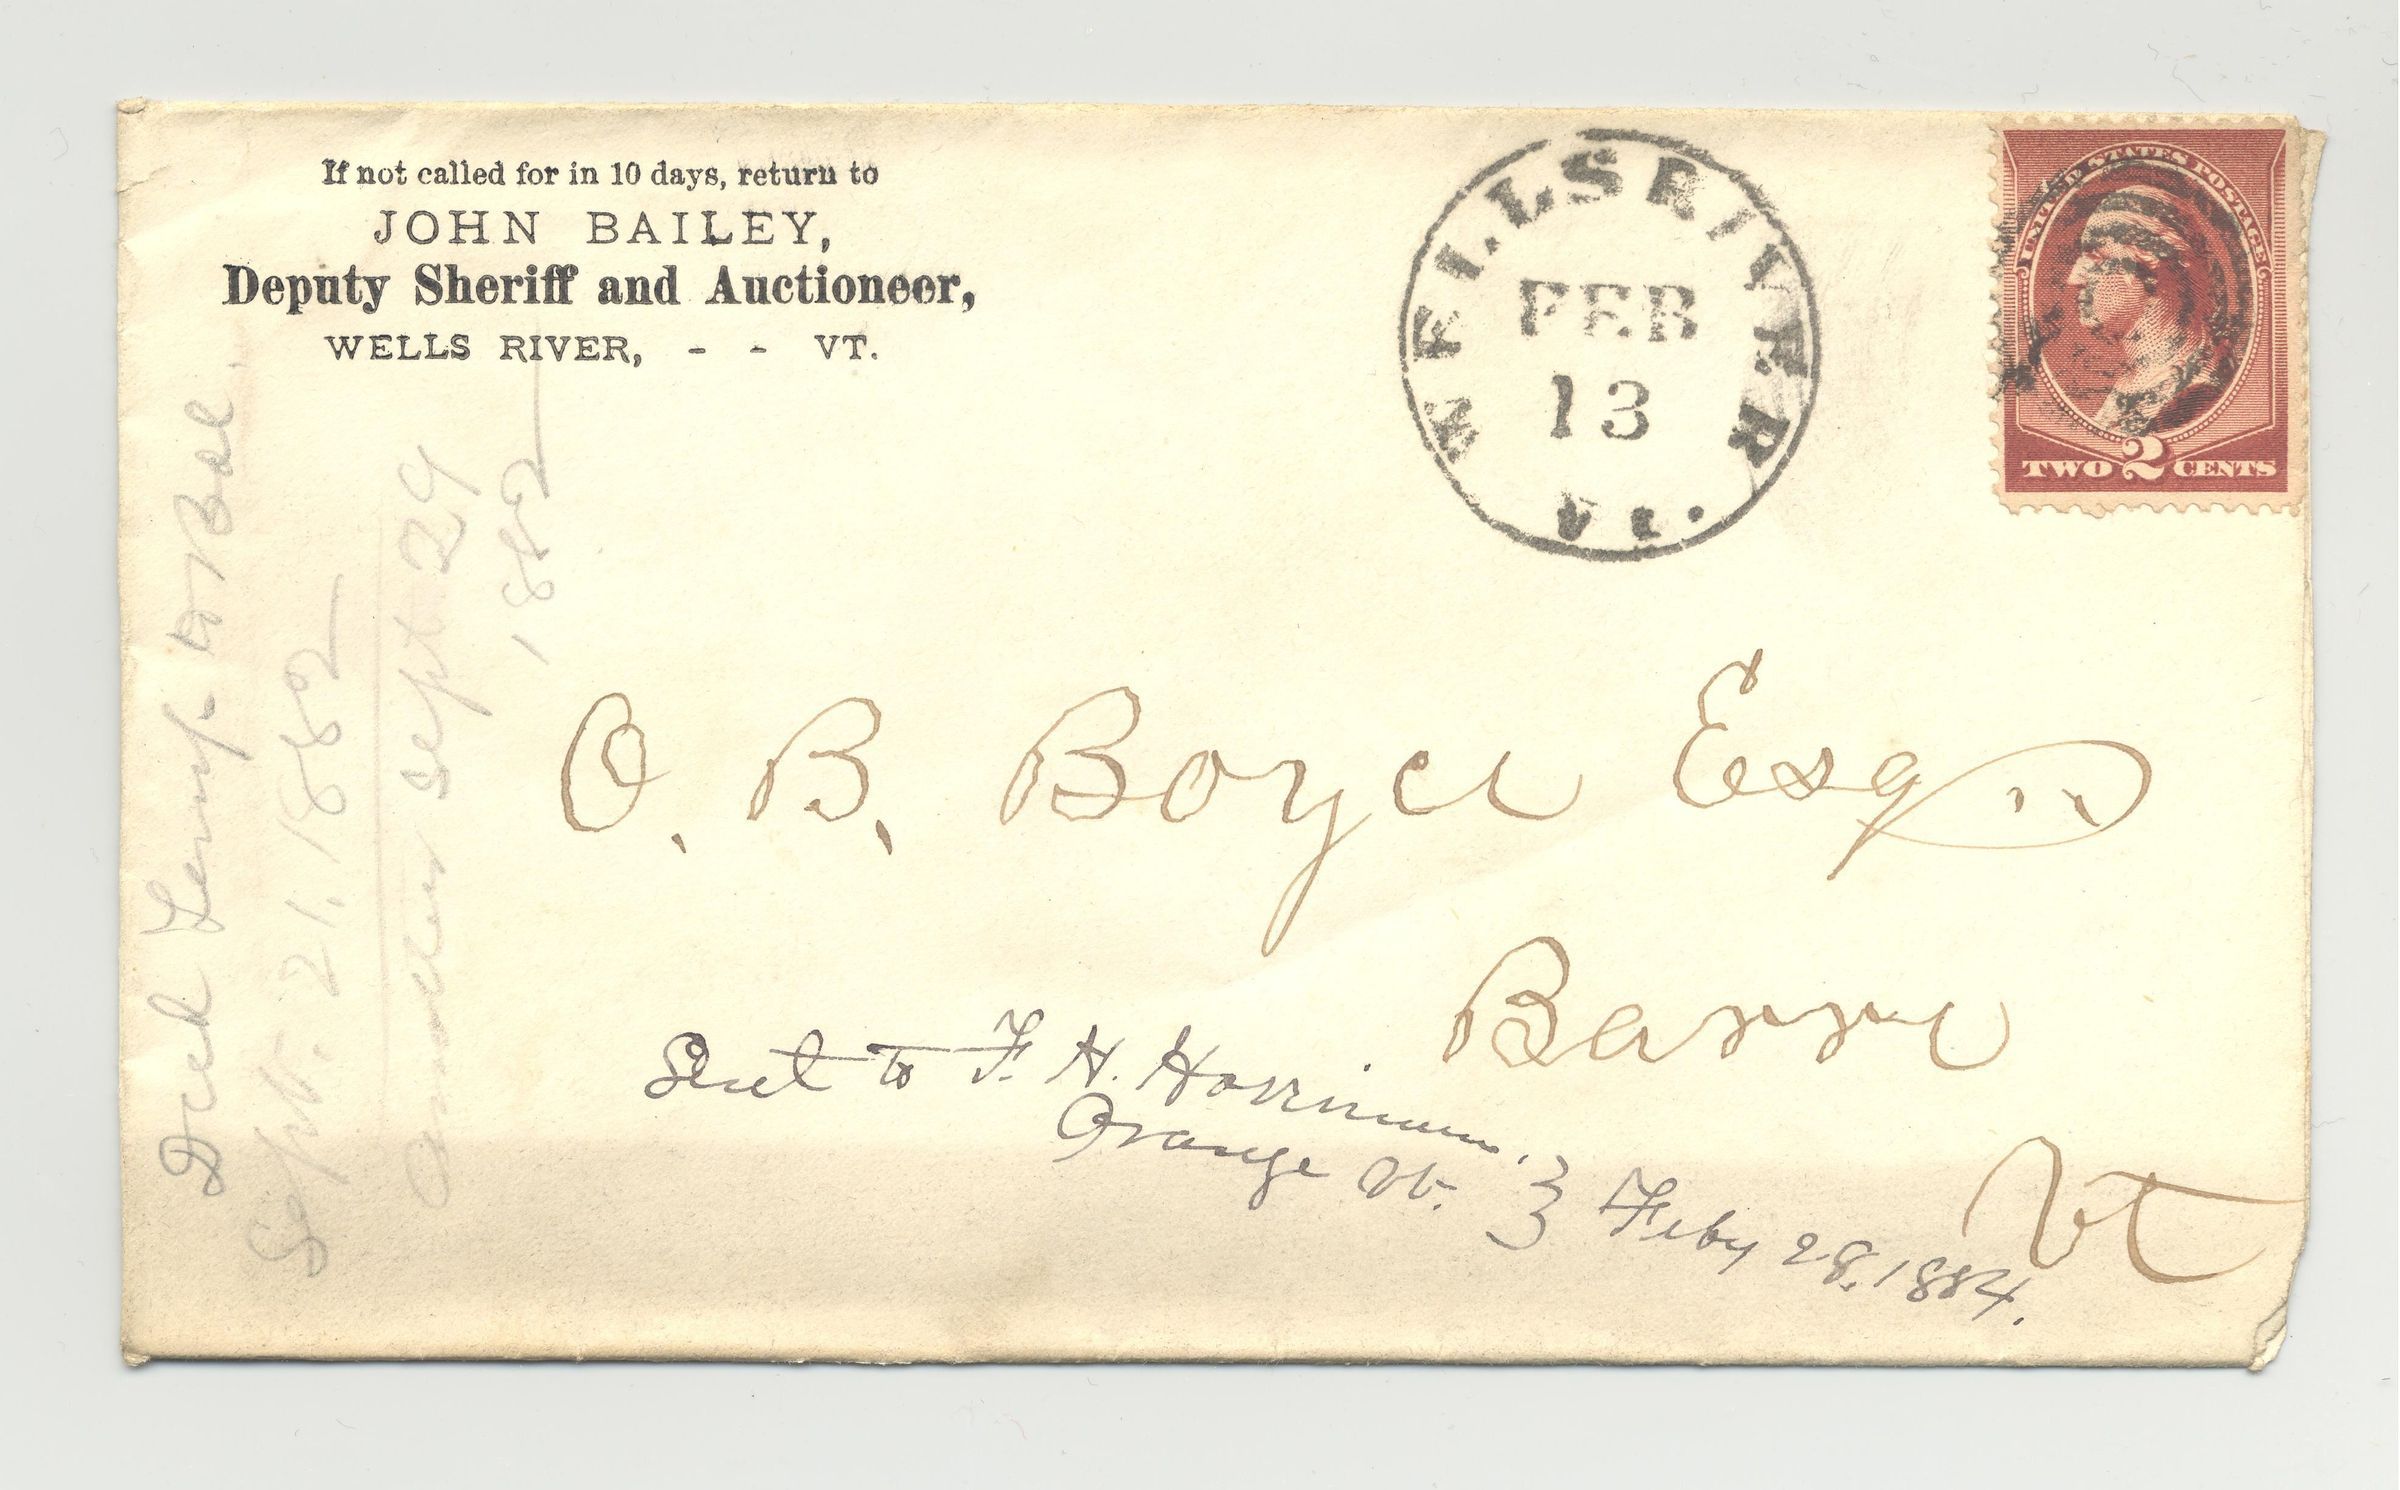 If not called for in 10 days, return to
JOHN BAILEY,
Deputy Sheriff and Auctioneer,
WELLS RIVER, - - VT.
WELLS RIVER
FEB
13
VT.
UNITED STATES POSTAGE
TWO 2 CENTS
O. B. Boyce Esq
Barre
Vt
Sent to F. H. Harriman,
Orange Vt. } Feby 28. 1884.
Sept. 21. 1882
Sept 29
1882